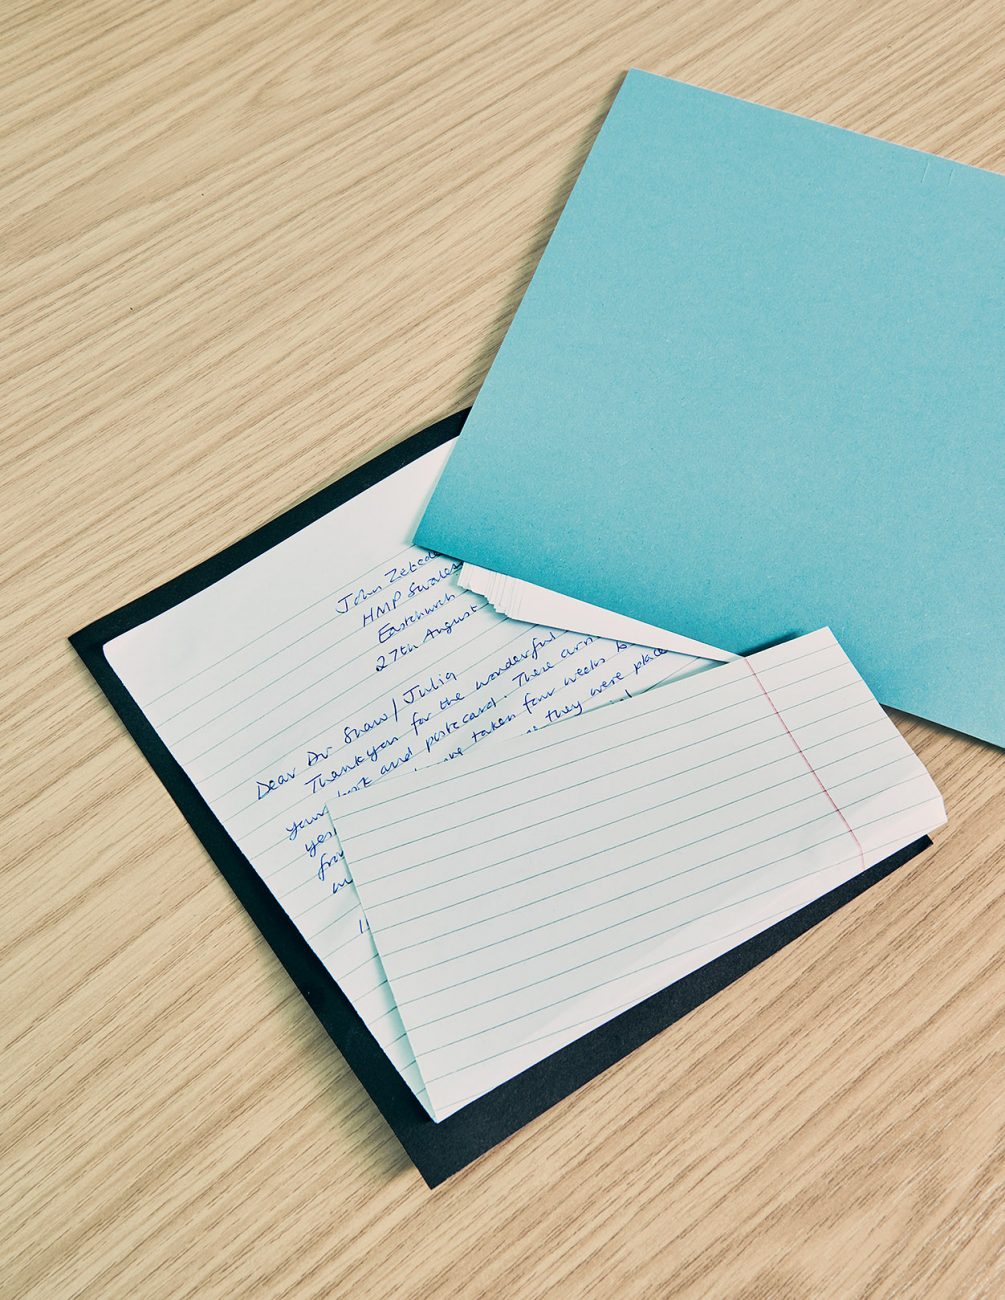 John Zebede
HMP Swales
Eastchurch
27th August
Dear Dr Shaw / Julia
Thankyou for the wonderful
your book and postcard. These arri
yes taken four weeks to
fro they were place